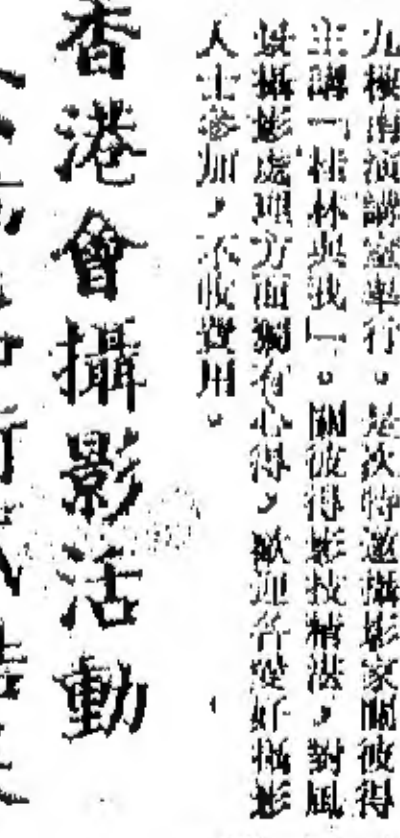 九樓南演講室舉行。是次特邀攝影家關彼得
主講「桂林與我」。關彼得影技精湛，對風
景攝影處理方面獨有心得，歡迎各愛好攝影
人士參加，不收費用。
香港會攝影活動